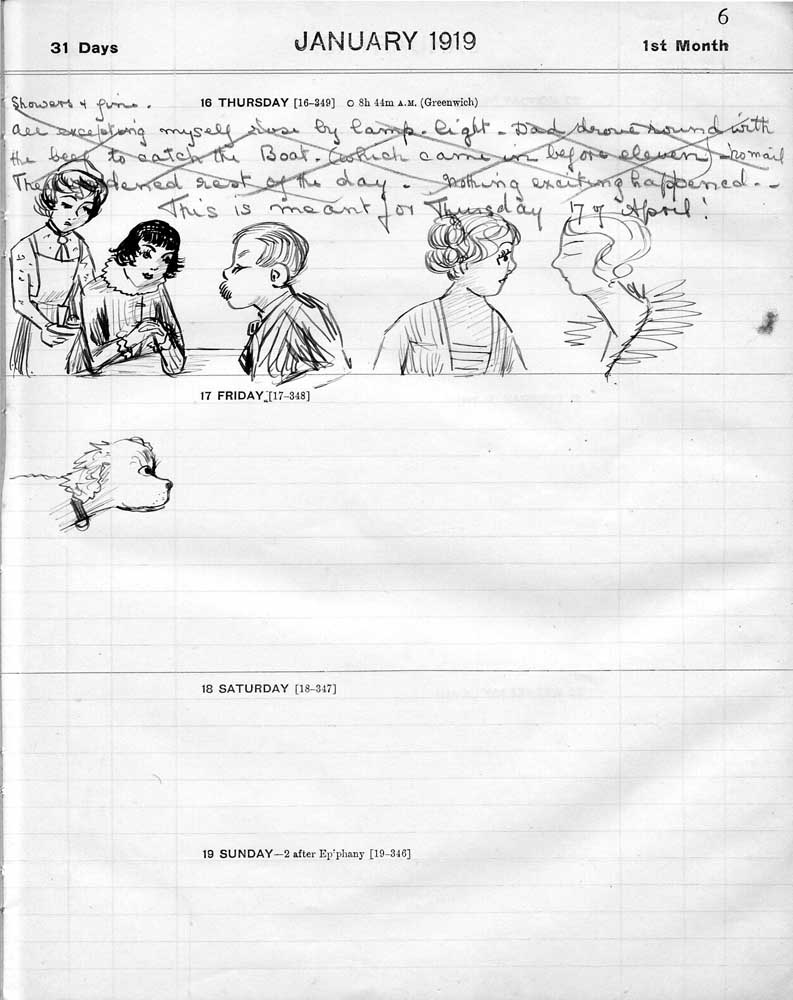 6
31 Days JANUARY 1919 1st Month
Showers & fine. 16 THURSDAY [16–349] ○ 8h 44m A.M. (Greenwich)
All excepting myself rose by lamp-light. Dad drove round with
the beef to catch the Boat. (which came in before eleven) – no mail
The rest of the day. Nothing exciting happened. -
This is meant for Thursday 17 of April!
17 FRIDAY [17–348]
18 SATURDAY [18–347]
19 SUNDAY—2 after Ep'phany [19–346]